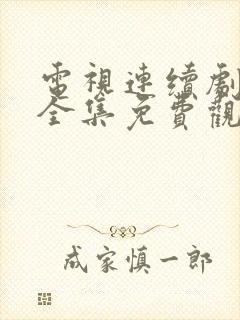 電視連續劇
全集免費觀
成家慎一郎